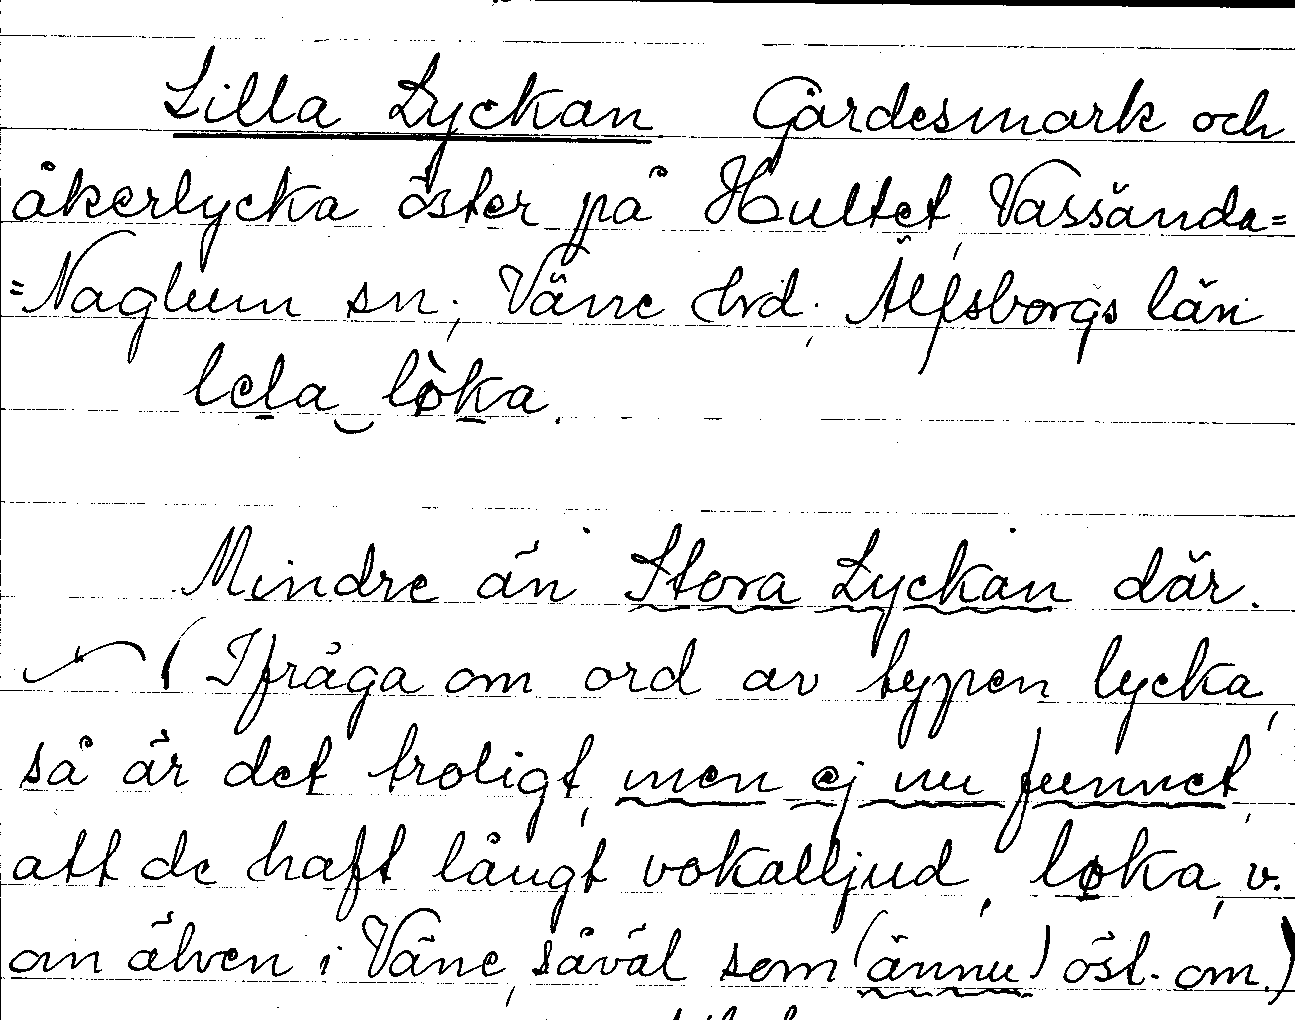 Lilla Lyckan Gärdesmark och
åkerlycka öster på Hultet, Vassända=
=Naglum sn; Väne hrd; Älfsborgs län
lela løka.
Mindre än Stora Lyckan där.
(Ifråga om ord av typen lycka,
så är det troligt, men ej nu funnet,
att de haft långt vokalljud, løka, v.
om älven i Väne, såväl som (ännu) öst. om.)